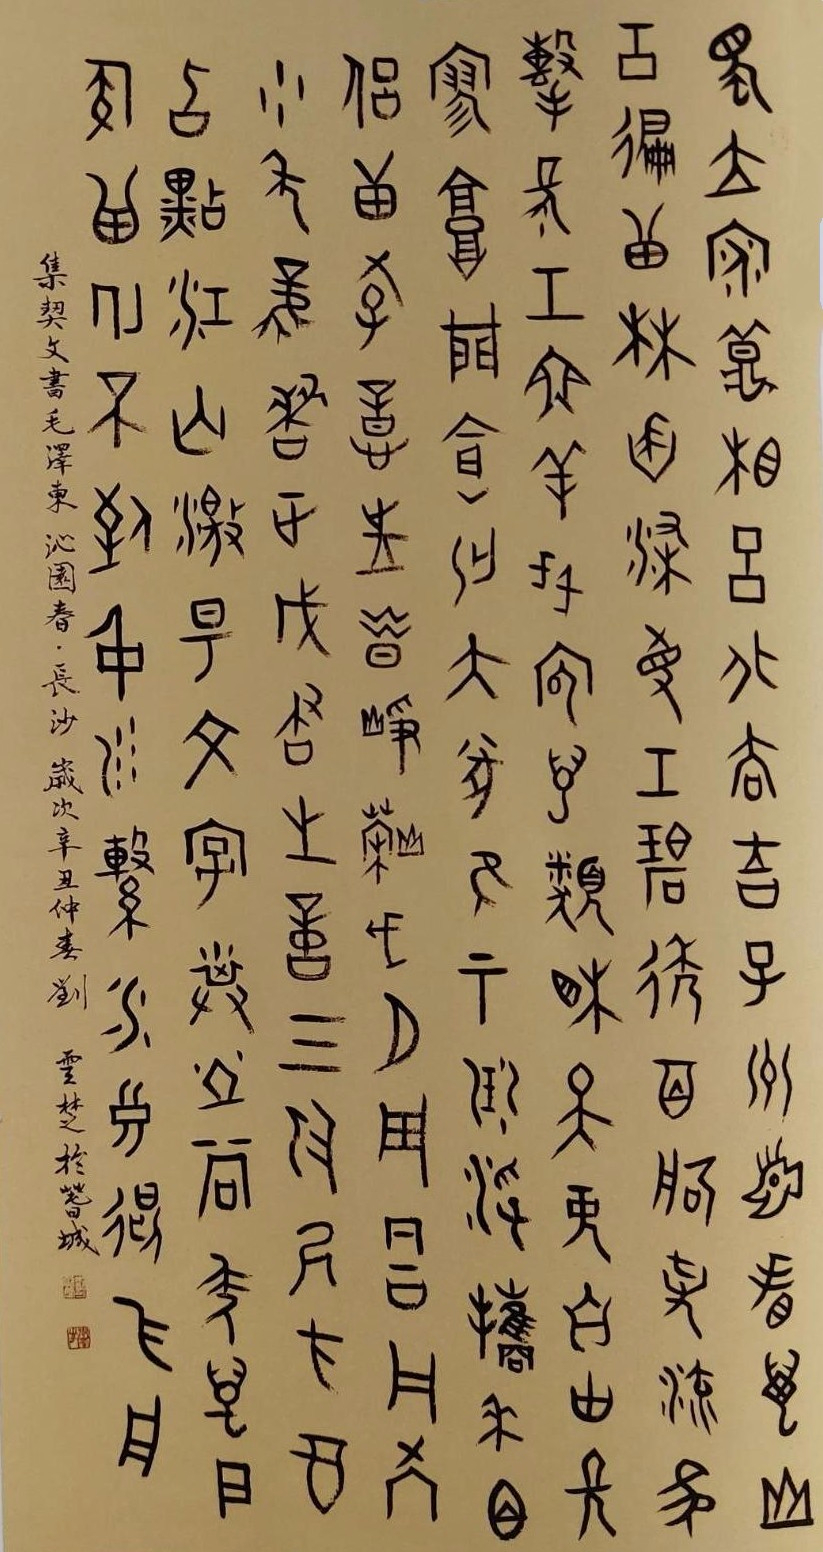 獨立寒秋湘江北去橘子洲頭看萬山
紅徧層林盡染漫江碧透百舸爭流鷹
擊長空魚翔淺底萬類霜天競自由悵
寥廓問蒼茫大地誰主沉浮攜來百
侶曾遊憶往昔崢嶸歲月稠恰同學
少年風華正茂書生意氣揮斥方遒
指點江山激揚文字糞土當年萬戶
侯曾記否到中流擊水浪遏飛舟
集契文書毛澤東沁園春·長沙 歲次辛丑仲春劉雲楚於城